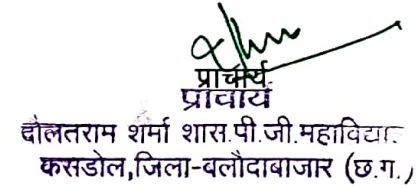 प्राचार्य
प्राचार्य
दौलतराम शर्मा शास.पी.जी.महाविद्या
कसडोल,जिला-बलौदाबाजार (छ.ग.)